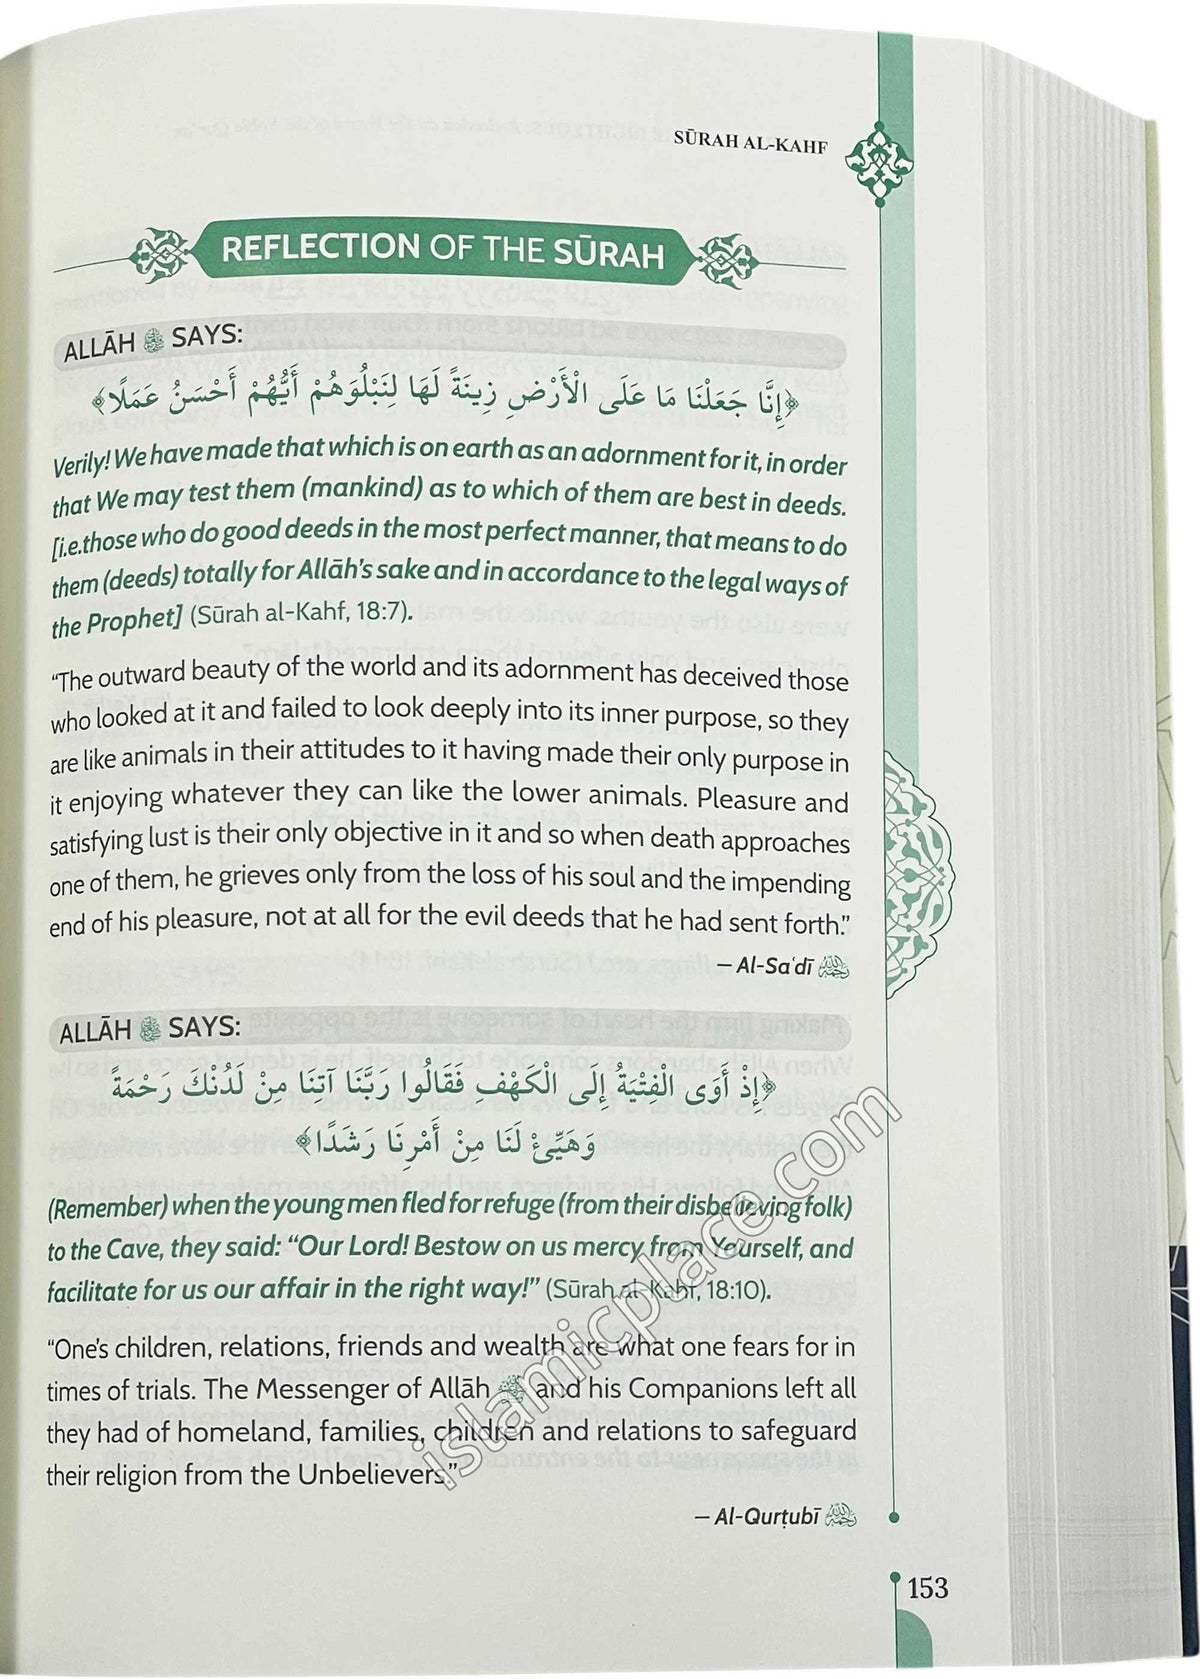 SŪRAH AL-KAHF
REFLECTION OF THE SŪRAH
ALLĀH ﷻ SAYS:
﴿إِنَّا جَعَلْنَا مَا عَلَى الْأَرْضِ زِينَةً لَهَا لِنَبْلُوَهُمْ أَيُّهُمْ أَحْسَنُ عَمَلًا﴾
Verily! We have made that which is on earth as an adornment for it, in order
that We may test them (mankind) as to which of them are best in deeds.
[i.e.those who do good deeds in the most perfect manner, that means to do
them (deeds) totally for Allāh's sake and in accordance to the legal ways of
the Prophet] (Sūrah al-Kahf, 18:7).
“The outward beauty of the world and its adornment has deceived those
who looked at it and failed to look deeply into its inner purpose, so they
are like animals in their attitudes to it having made their only purpose in
it enjoying whatever they can like the lower animals. Pleasure and
satisfying lust is their only objective in it and so when death approaches
one of them, he grieves only from the loss of his soul and the impending
end of his pleasure, not at all for the evil deeds that he had sent forth.”
– Al-Saʿdī
ALLĀH ﷻ SAYS:
﴿إِذْ أَوَى الْفِتْيَةُ إِلَى الْكَهْفِ فَقَالُوا رَبَّنَا آتِنَا مِنْ لَدُنْكَ رَحْمَةً
وَهَيِّئْ لَنَا مِنْ أَمْرِنَا رَشَدًا﴾
(Remember) when the young men fled for refuge (from their disbelieving folk)
to the Cave, they said: “Our Lord! Bestow on us mercy from Yourself, and
facilitate for us our affair in the right way!” (Sūrah al-Kahf, 18:10).
“One's children, relations, friends and wealth are what one fears for in
times of trials. The Messenger of Allāh ﷺ and his Companions left all
they had of homeland, families, children and relations to safeguard
their religion from the Unbelievers.”
– Al-Qurṭubī
153
islamicplace.com